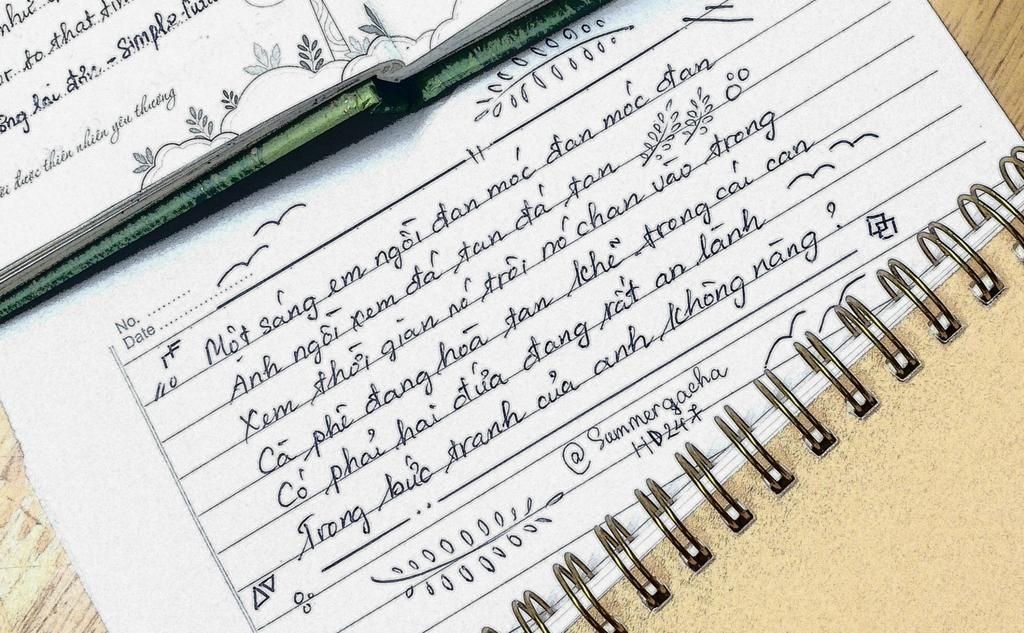 như
to that
Simple
lai đơn
được thiên nhiên yêu thương
No.
Date
Một sáng em ngồi đan móc đan móc đan
Anh ngồi xem đá tan đá tan
Xem thời gian nó trôi nó chan vào trong
Cà phê đang hoà tan khẽ trong cái can
Có phải hai đứa đang rất an lành
Trong bức tranh của anh không nàng ?
@Summergacha
HD247